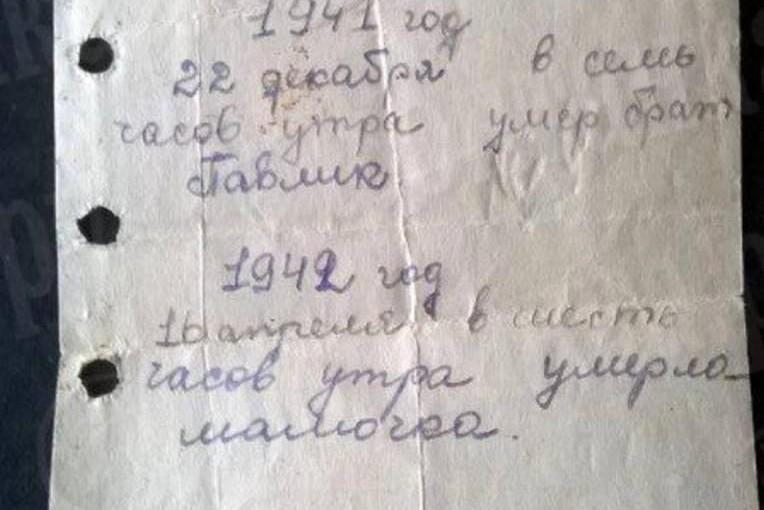 1941 год
22 декабря в семь
часов утра умер брат
Павлик
1942 год
16 апреля в шесть
часов утра умерла
мамочка.